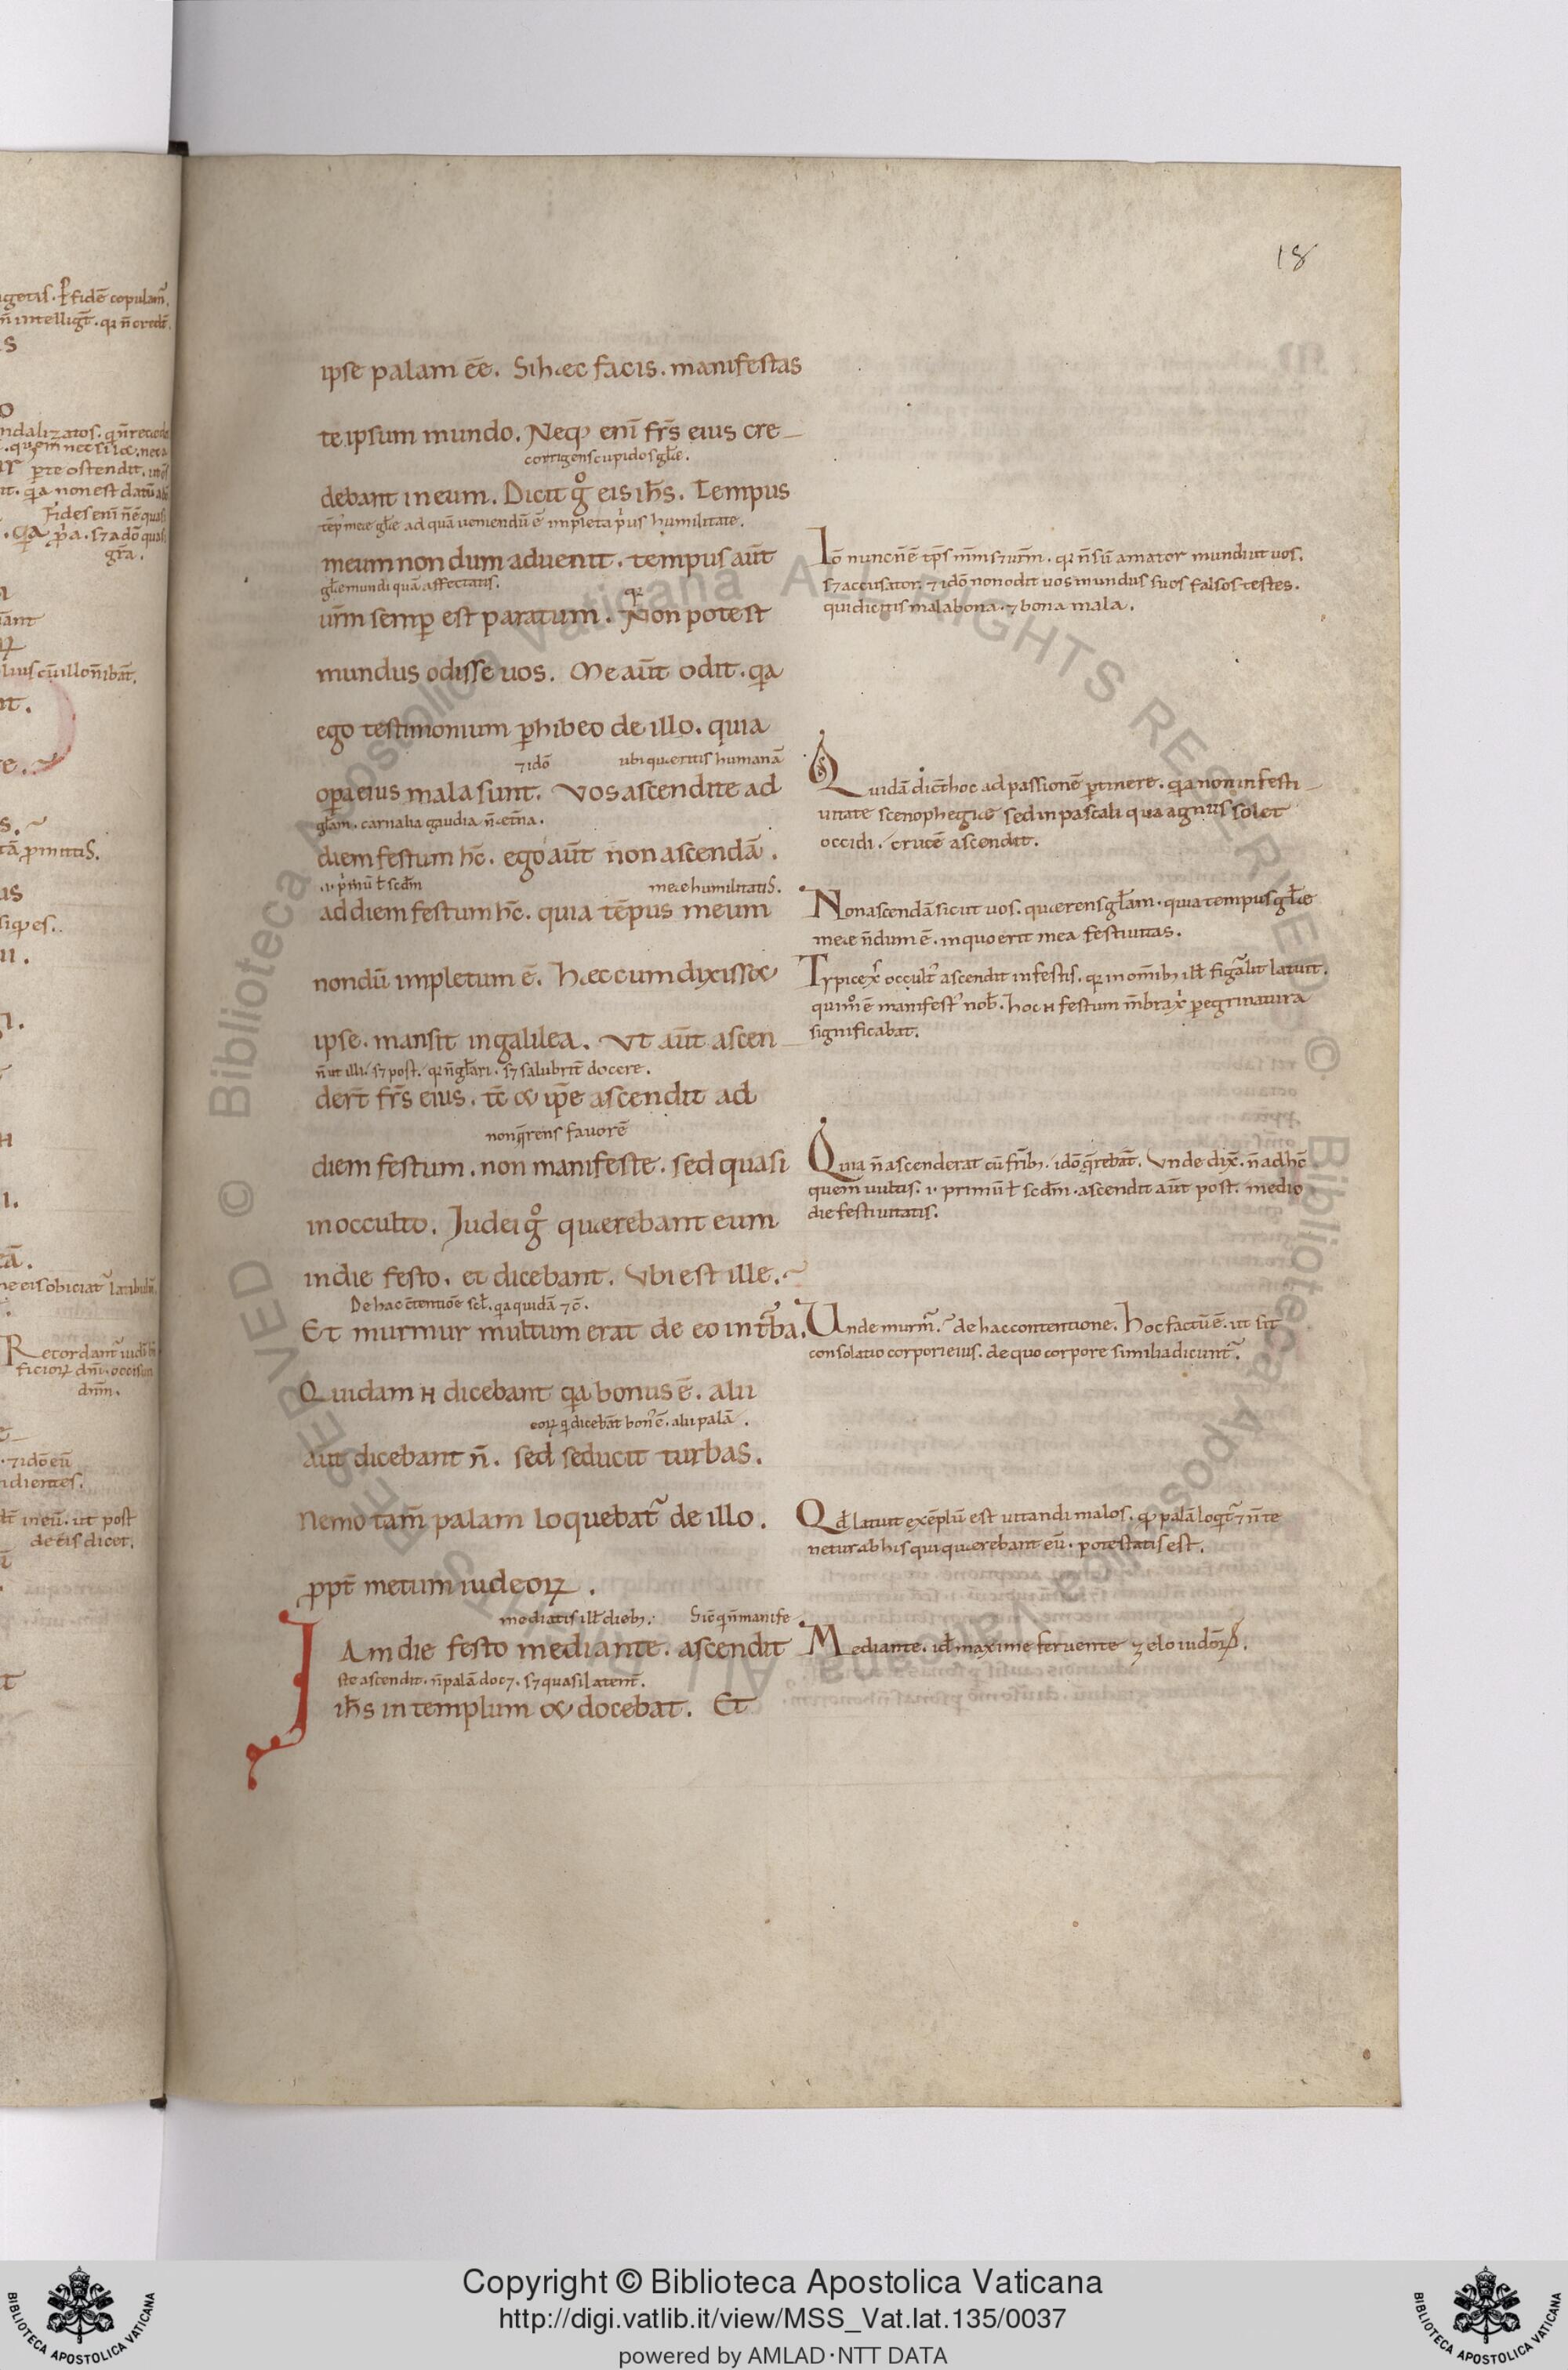 18
ipse palam ēē. Si hæc facis. manifestas
te ipsum mundo. Neq; eni frs̄ eius cre-
corrigens cupidos glǣ.
debant in eum. Dicit gͦ eis ih̄s. Tempus
ad quā ueniendū ē impleta pͥus humilitate.
meum nondum aduenit. tempus aūt
glǣ mundi quā affectatis.
qꝛ
ur̄m semꝑ est paratum. Non potest
mundus odisse uos. Me aūt odit. qͥa
ego testimonium ꝑhibeo de illo. quia
⁊ idō ubi quæritis humanā
oꝑa eius mala sunt. Vos ascendite ad
glām. carnalia gaudia n̄ æt̄na.
diem festum hc̄. ego aūt non ascendā.
.i. pͥmū ł scdm̄ meæ humilitatis.
ad diem festum hc̄. quia tēpus meum
nondū impletum ē. Hæc cum dixisset
ipse. mansit in galilea. Vt aūt ascen-
n̄ ut illi. sꝫ post. qꝛ n̄ glāri. sꝫ salubrit̄ docere.
dert̄ frs̄ eius. tc̄ & ip̄e ascendit ad
non q̄rens fauorē
diem festum. non manifeste. sed quasi
in occulto. Judei gͦ quærebant eum
in die festo. et dicebant. Vbi est ille.
De hac c̄tentiōe scł. qͥa quidā ⁊ c̄.
Et murmur multum erat de eo in tͬba.
Quidam н dicebant qͥa bonus ē. alii
eoꝝ qͥ dicebāt bonꝰ ē. alii palā.
aūt dicebant n̄. sed seducit turbas.
Nemo tam̄ palam loquebatᷣ de illo.
ꝓpt̄ metum iudeoꝝ.
mediatis ill̄ dieb;. Sic qͥ n̄ manife-
Jam die festo mediante. ascendit
ste ascendit. n̄ palā doc⁊. sꝫ quasi latent̄.
ih̄s in templum & docebat. Et
Iō nunc n̄ ē tp̄s mm̄ sꝫ ur̄m. qꝛ n̄ sū amator mundi ut uos.
sꝫ accusator. ⁊ idō non odit uos mundus suos falsos testes.
qui dicitis mala bona. ⁊ bona mala.
Quidā dic̄t hoc ad passionē ꝑtinere. qͥa non in festi-
uitate scenophegiæ sed in pascali qua agnus solet
occidi. crucē ascendit.
Non ascendā sicut uos. quærens glām. quia tempus glǣ
meæ n̄dum ē. in quo erit mea festiuitas.
Typice xͬ occultꝰ ascendit in festis. qꝛ in omīb; ill̄ figͣlit latuit.
qui mͦ ē manifestꝰ nob̄. hoc н festum m̄bra xͥ peregrinatura
significabat.
Quia n̄ ascenderat cū frīb;. idō q̄rebāt. Vnde dix̄. n̄ ad hc̄
quem uultis. .i. primū ł scdm̄. ascendit aūt post. medio
die festiuitatis.
Unde murmᷣ. de hac contentione. Hoc factū ē. ut sit
consolatio corpori eius. de quo corpore similia dicuntᷣ.
Qd̄ latuit exēplū est uitandi malos. qͦ palā loqͥtᷣ ⁊ n̄ te
netur ab his qui quærebant eū. potestatis est.
Mediante. id̄ maxime feruente zelo iudōꝝ.
Copyright © Biblioteca Apostolica Vaticana
http://digi.vatlib.it/view/MSS_Vat.lat.135/0037
powered by AMLAD·NTT DATA